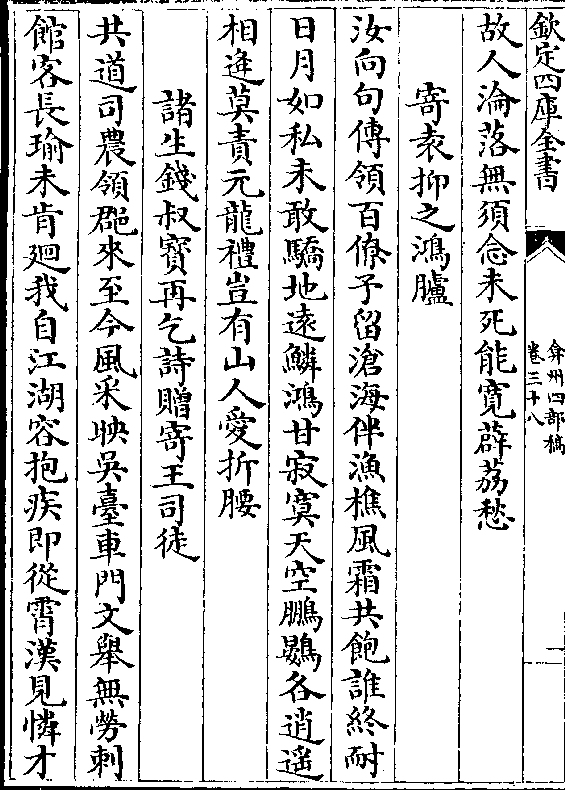 欽定四庫全書
弇州四部稿
卷三十八
故人淪落無須念未死能寛薜荔愁
寄袁抑之鴻臚
汝向句傳領百僚予留滄海伴漁樵風霜共飽誰終耐
日月如私未敢驕地遠鱗鴻甘寂寞天空鵬鷃各逍遥
相逢莫責元龍禮豈有山人愛折腰
諸生錢叔寳再乞詩贈寄王司徒
共道司農領郡來至今風采映吳臺車門文舉無勞刺
館客長瑜未肯廻我自江湖容抱疾即從霄漢見憐才